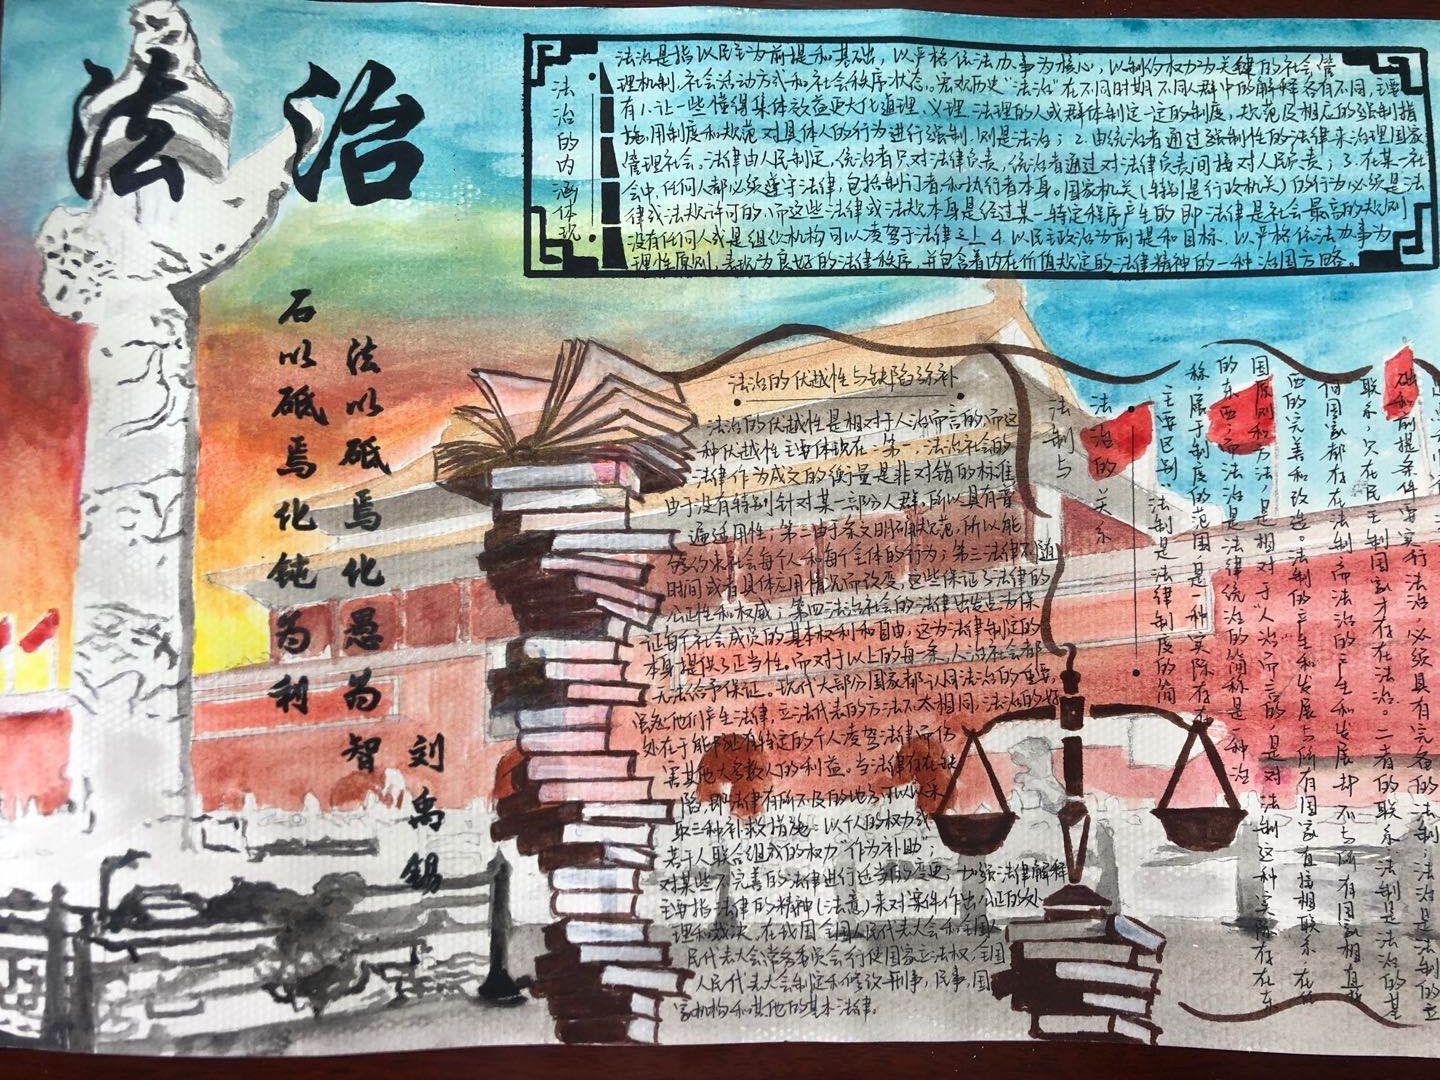 法治
石以砥焉化钝为利
法以砥焉化愚为智
刘禹锡
法治的内涵体现
法治是指以民主为前提和基础，以严格依法办事为核心，以制约权力为关键的社会管
理机制、社会活动方式和社会秩序状态。宏观历史“法治”在不同时期不同人群中的解释各有不同，主要
有1.让一些懂得集体效益更大化道理、义理、法理的人或群体制定一定的制度、规范及相应的强制措
施，用制度和规范对具体人的行为进行强制，则是法治；2.由统治者通过强制性的法律来治理国家
管理社会，法律由人民制定，统治者只对法律负责，统治者通过对法律负责间接对人民负责；3.在某一社
会中，任何人都必须遵守法律，包括制订者和执行者本身。国家机关（特别是行政机关）的行为必须是法
律或法规许可的，而这些法律或法规本身是经过某一特定程序产生的即法律是社会最高的规则
没有任何人或是组织机构可以凌驾于法律之上4.以民主政治为前提和目标，以严格依法办事为
理性原则，表现为良好的法律秩序，并包含着内在价值规定的法律精神的一种治国方略。
法治的优越性与缺陷弥补
法治的优越性是相对于人治而言的，而这
种优越性主要体现在：第一，法治社会的
法律作为成文的衡量是非对错的标准
由于没有特别针对某一部分人群，所以具有普
遍适用性；第二由于条文明确规范，所以能
够约束社会每个人和每个全体的行为；第三法律不随
时间或者具体应用情况而改变，这些保证了法律的
公正性和权威；第四法治社会的法律出发点为保
证每个社会成员的基本权利和自由，这为法律制定的
本身提供了正当性，而对于以上的每一条，人治社会都
无法给予保证。现代大部分国家都认同法治的重要，
虽是他们产生法律，立法代表的方法不太相同，法治的好
处在于能够处有特定的个人凌驾法律而伤
害其他大多数人的利益。当法律存在缺
陷，即法律有所不及的地方，可以以采
取三种补救措施：以个人的权力或
若干人联合组成的权力“作为补助；
对某些不完善的法律进行适当的变更；加强法律解释
主要指法律的精神（法意）来对案件作出公正的处
理和裁决，在我国全国人民代表大会和全国人
民代表大会常务委员会行使国家立法权，全国
人民代表大会制定和修改刑事，民事，国
家机构和其他的基本法律。
法制与
法治的关系
主要区别：法制是法律制度的简
称，属于制度的范围，是一种实际存在
的东西；而法治是法律统治的简称，是一种治
国原则和方法，是相对于“人治”而言的，是对法制这种实际存在东
西的完善和改造。法制的产生和发展与所有国家直接相联系，在任
何国家都存在法制，而法治的产生和发展却不与所有国家相直接
联系，只在民主制国家才存在法治。二者的联系：法制是法治的基
础和前提条件，要实行法治，必须具有完备的法制；法治是法制的立